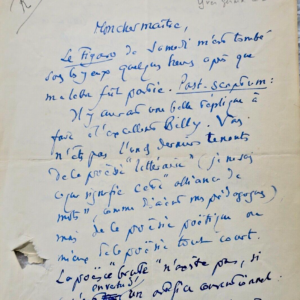 Mon cher maître,
Le Figaro de Samedi m'est tombé
sous les yeux quelques heures après que
ma lettre fût partie. Post-scriptum:
Il y aurait une belle réplique à
faire à l'excellent Billy. Vous
n'êtes pas l'un des derniers tenants
de la poésie "littéraire" (je ne sais
ce que signifie cette "alliance de
mots", comme disaient mes pédagogues)
mais de la poésie poétique ou
mieux de la poésie tout court.
La poésie brute n'existe pas, si
un conventionnel.